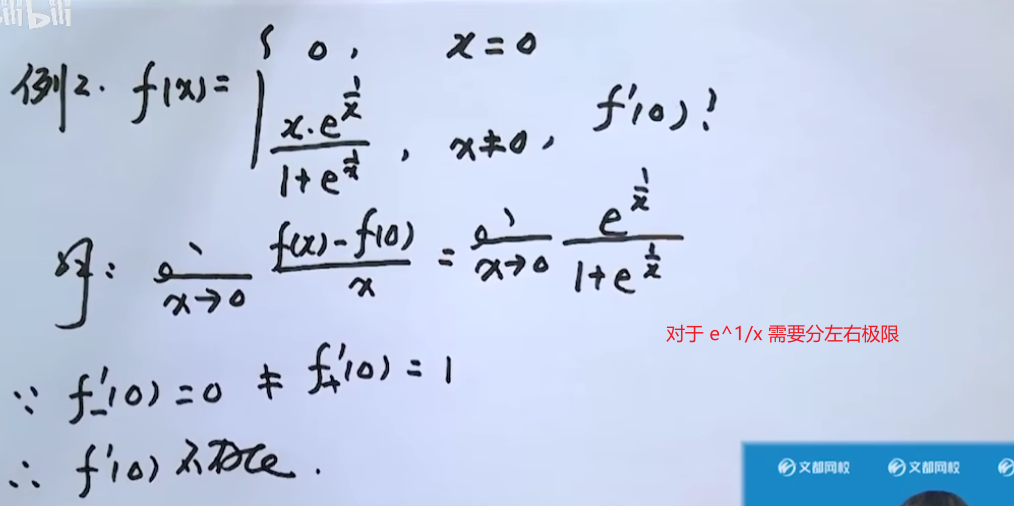 bilibili
例2. f(x) = { 0, x = 0
x·e^{1/x} / (1+e^{1/x}), x≠0, f'(0)?
解: lim_{x→0} (f(x)-f(0))/x = lim_{x→0} e^{1/x} / (1+e^{1/x})
对于 e^1/x 需要分左右极限
∵ f'_-(0) = 0 ≠ f'_+(0) = 1
∴ f'(0) 不存在.
文都网校 文都网校